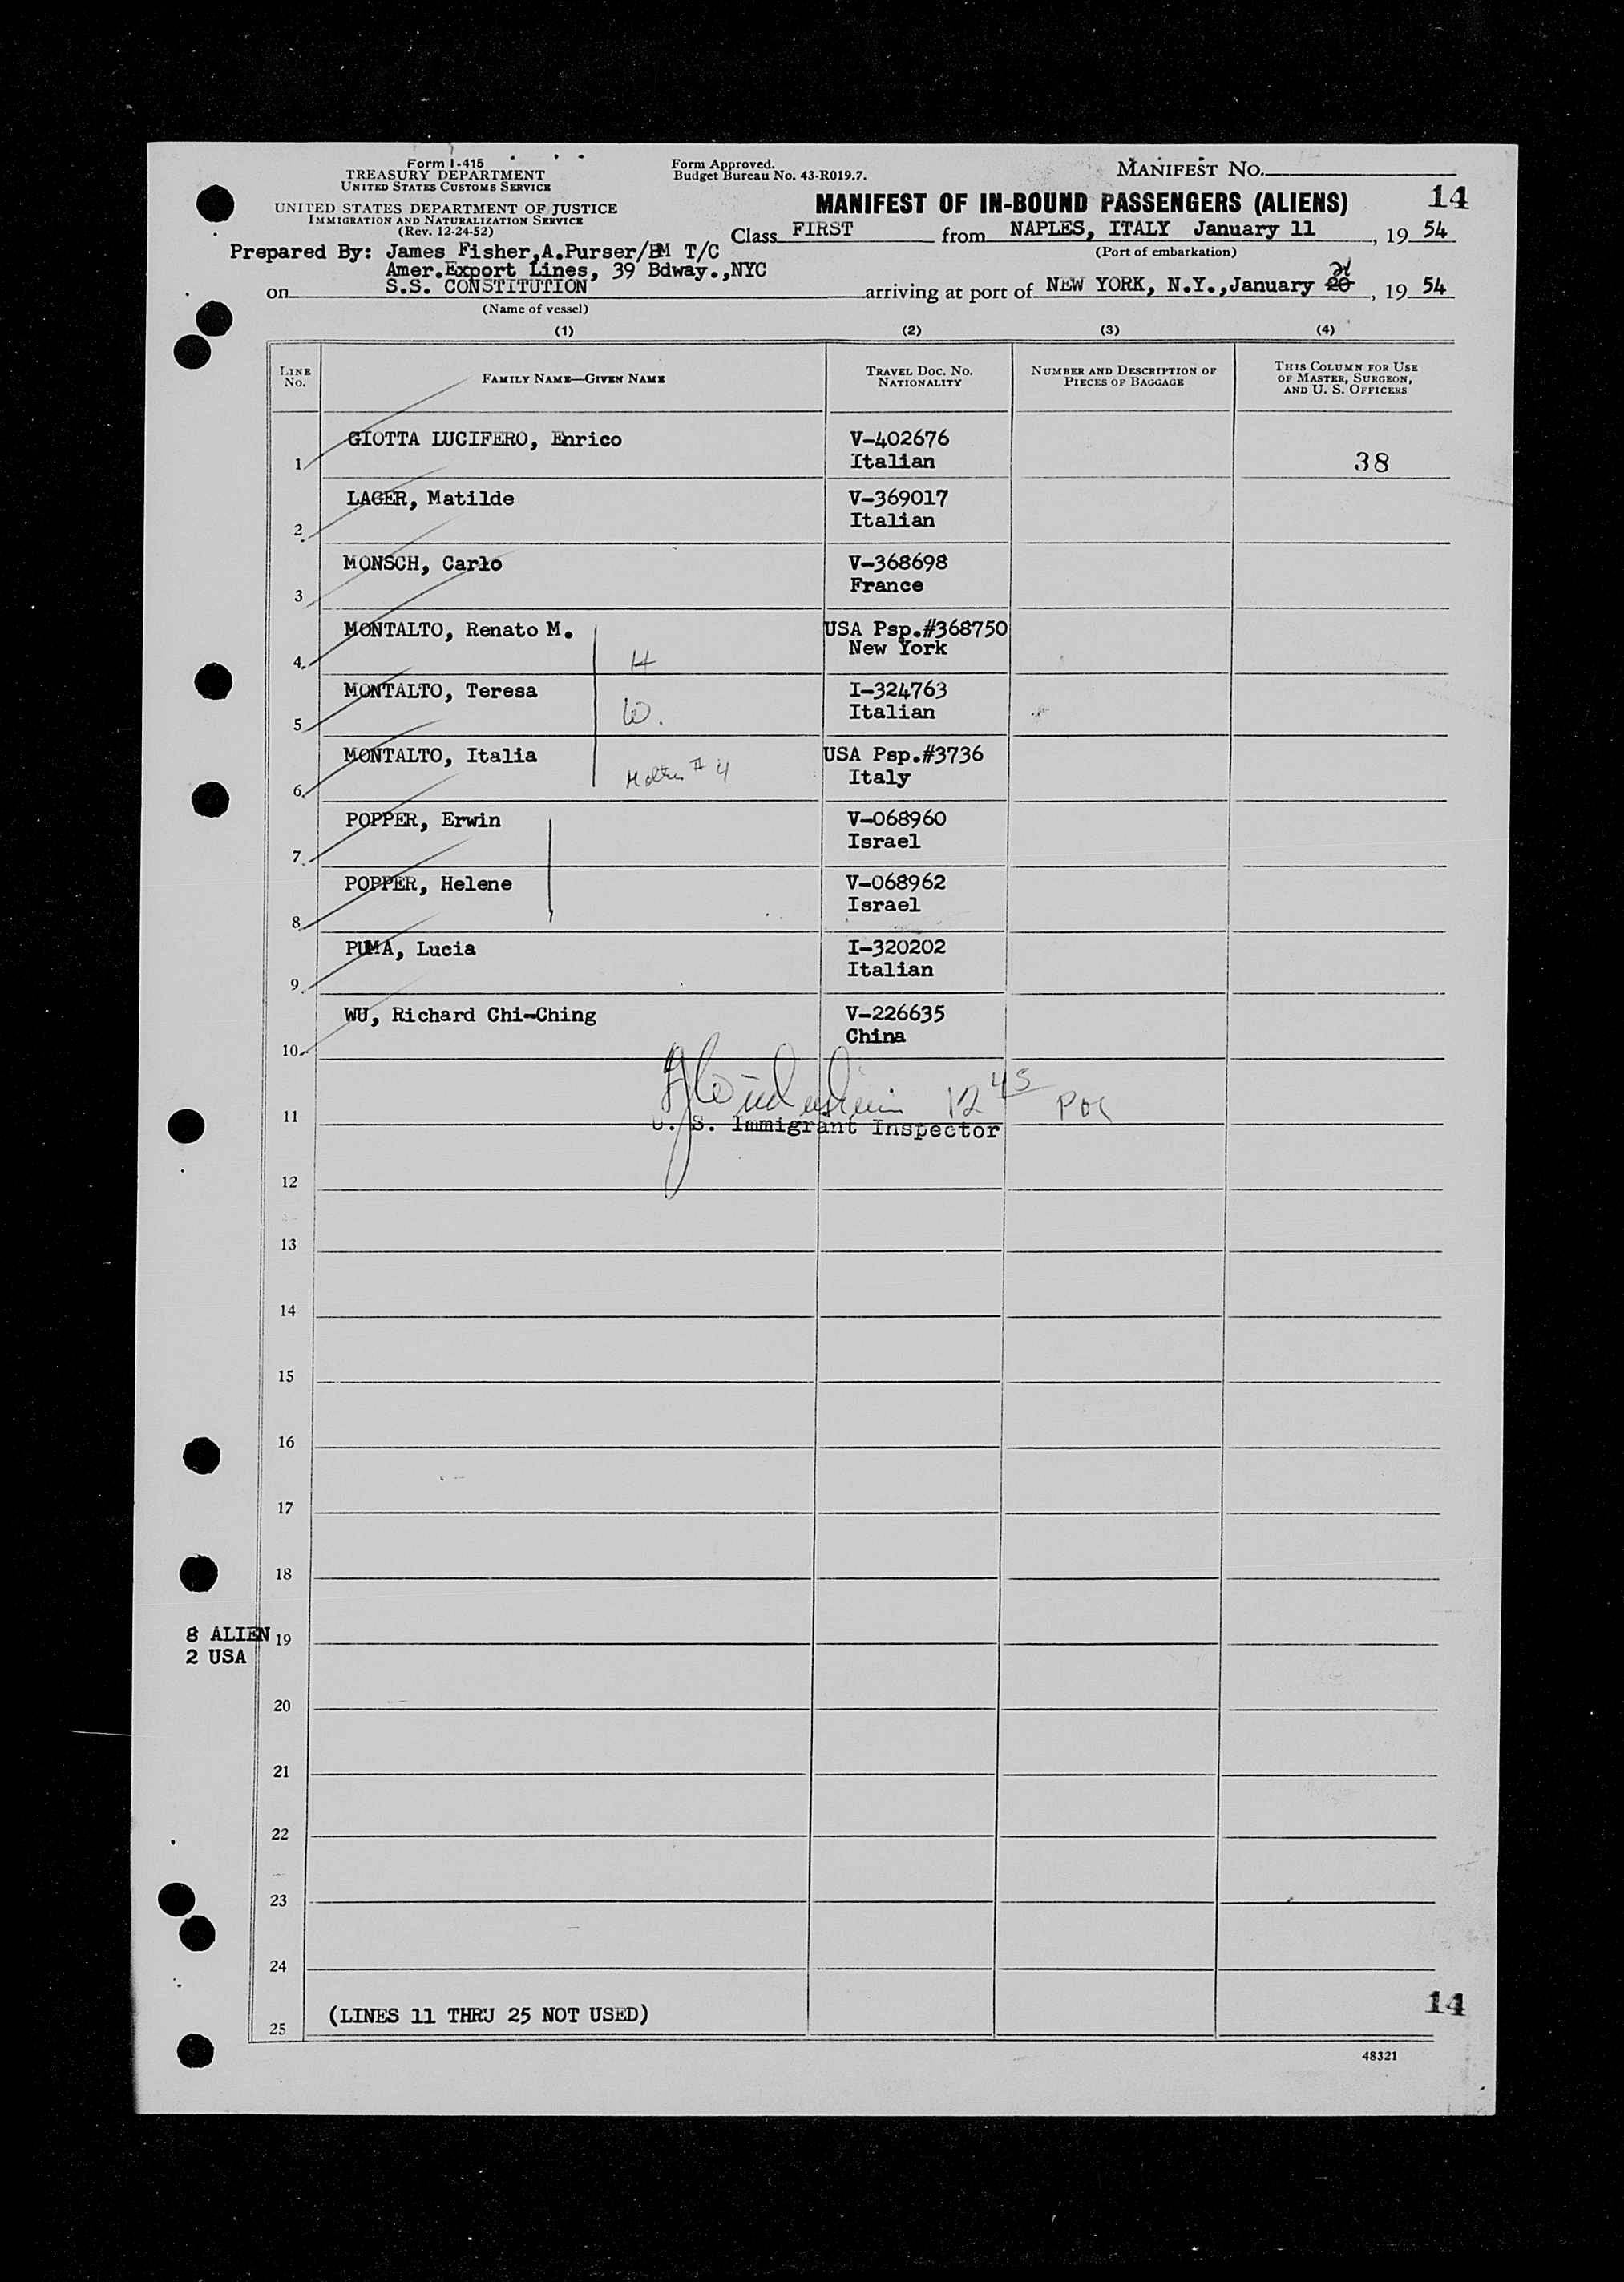 Form I-415
TREASURY DEPARTMENT
UNITED STATES CUSTOMS SERVICE
UNITED STATES DEPARTMENT OF JUSTICE
IMMIGRATION AND NATURALIZATION SERVICE
(Rev. 12-24-52)
Form Approved.
Budget Bureau No. 43-R019.7.
MANIFEST NO.
14
MANIFEST OF IN-BOUND PASSENGERS (ALIENS)
Class FIRST from NAPLES, ITALY January 11, 19 54
(Port of embarkation)
Prepared By: James Fisher,A.Purser/BM T/C
Amer.Export Lines, 39 Bdway.,NYC
on S.S. CONSTITUTION arriving at port of NEW YORK, N.Y.,January 20 21, 19 54
(Name of vessel)
(1) (2) (3) (4)
LINE NO. FAMILY NAME—GIVEN NAME TRAVEL DOC. NO. NATIONALITY NUMBER AND DESCRIPTION OF PIECES OF BAGGAGE THIS COLUMN FOR USE OF MASTER, SURGEON, AND U. S. OFFICERS
GIOTTA LUCIFERO, Enrico V-402676
1 Italian 38
LAGER, Matilde V-369017
2 Italian
MONSCH, Carlo V-368698
3 France
MONTALTO, Renato M. USA Psp.#368750
4 H New York
MONTALTO, Teresa I-324763
5 W. Italian
MONTALTO, Italia USA Psp.#3736
6 # 4 Italy
POPPER, Erwin V-068960
7 Israel
POPPER, Helene V-068962
8 Israel
PUMA, Lucia I-320202
9 Italian
WU, Richard Chi-Ching V-226635
10 China
12 45
11 U. S. Immigrant Inspector
12
13
14
15
16
17
18
8 ALIEN 19
2 USA
20
21
22
23
24
14
25 (LINES 11 THRU 25 NOT USED)
48321